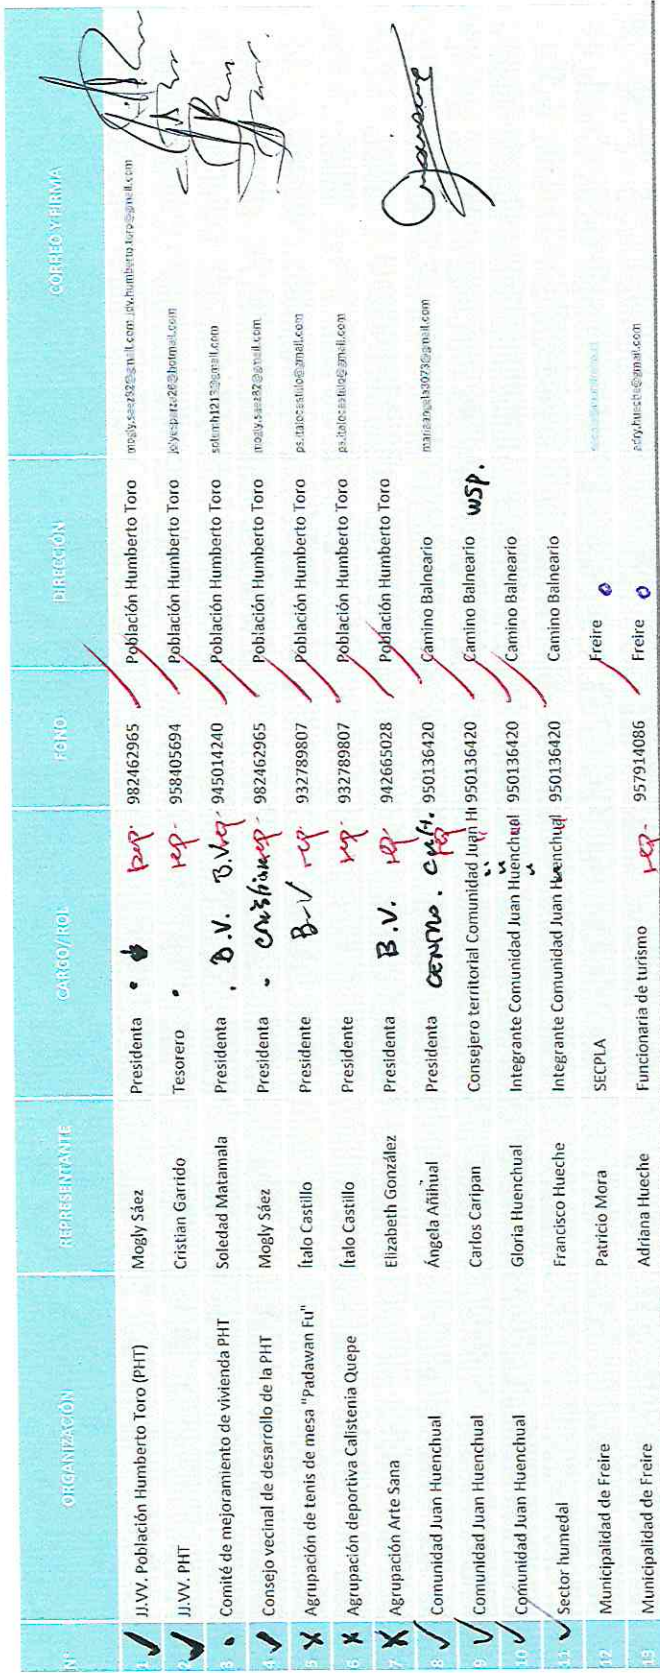 N° ORGANIZACIÓN REPRESENTANTE CARGO/ROL FONO DIRECCIÓN CORREO Y FIRMA
1 JJ.VV. Población Humberto Toro (PHT) Mogly Sáez Presidenta rep. 982462965 Población Humberto Toro
2 JJ.VV. PHT Cristian Garrido Tesorero rep. 958405694 Población Humberto Toro
3 Comité de mejoramiento de vivienda PHT Soledad Matamala Presidenta . B.V. B.V. rep. 945014240 Población Humberto Toro
4 Consejo vecinal de desarrollo de la PHT Mogly Sáez Presidenta . cristian rep. 982462965 Población Humberto Toro
5 Agrupación de tenis de mesa "Padawan Fu" Ítalo Castillo Presidente B.V rep. 932789807 Población Humberto Toro ps.italocastillo@gmail.com
6 Agrupación deportiva Calistenia Quepe Ítalo Castillo Presidente rep. 932789807 Población Humberto Toro ps.italocastillo@gmail.com
7 Agrupación Arte Sana Elizabeth González Presidenta B.V. rep. 942665028 Población Humberto Toro
8 Comunidad Juan Huenchual Ángela Añiñual Presidenta CENTRO. rep. 950136420 Camino Balneario mariaangela3073@gmail.com
9 Comunidad Juan Huenchual Carlos Caripan Consejero territorial Comunidad Juan H 950136420 Camino Balneario WSP.
10 Comunidad Juan Huenchual Gloria Huenchual Integrante Comunidad Juan Huenchual 950136420 Camino Balneario
11 Sector humedal Francisco Hueche Integrante Comunidad Juan Huenchual 950136420 Camino Balneario
12 Municipalidad de Freire Patricio Mora SECPLA Freire
13 Municipalidad de Freire Adriana Hueche Funcionaria de turismo rep. 957914086 Freire adry.hueche@gmail.com